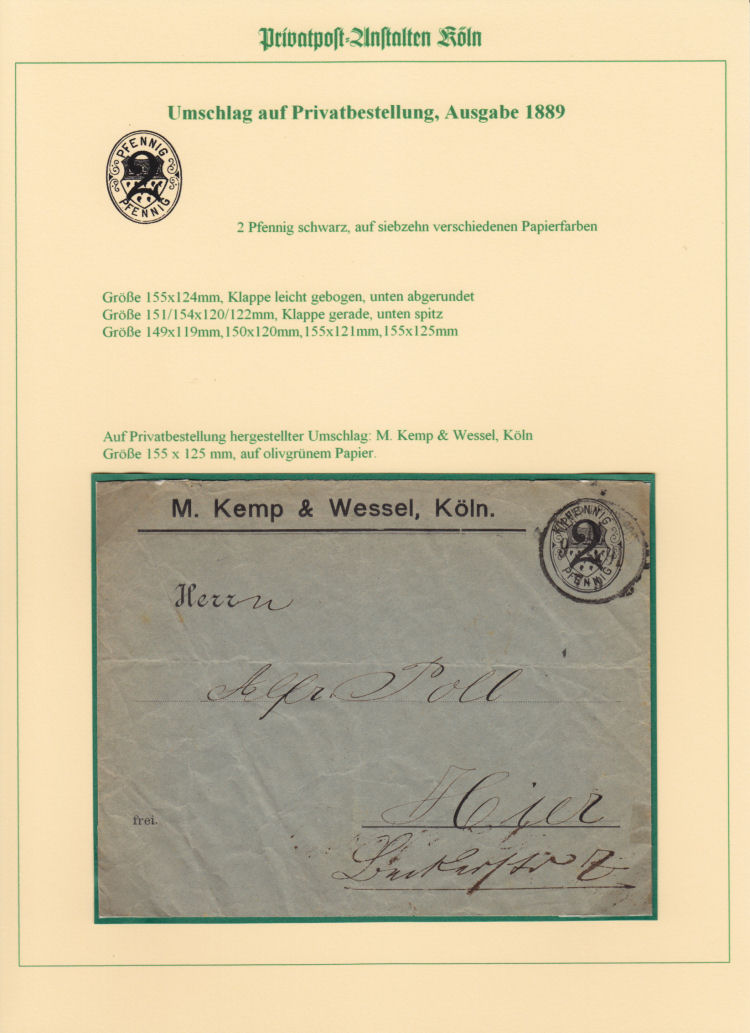 Privatpost-Anstalten Köln
Umschlag auf Privatbestellung, Ausgabe 1889
PFENNIG
2
PFENNIG
2 Pfennig schwarz, auf siebzehn verschiedenen Papierfarben
Größe 155x124mm, Klappe leicht gebogen, unten abgerundet
Größe 151/154x120/122mm, Klappe gerade, unten spitz
Größe 149x119mm,150x120mm,155x121mm,155x125mm
Auf Privatbestellung hergestellter Umschlag: M. Kemp & Wessel, Köln
Größe 155 x 125 mm, auf olivgrünem Papier.
M. Kemp & Wessel, Köln.
PFENNIG
2
PFENNIG
Herrn
Alfr. Poll
Hier
frei.